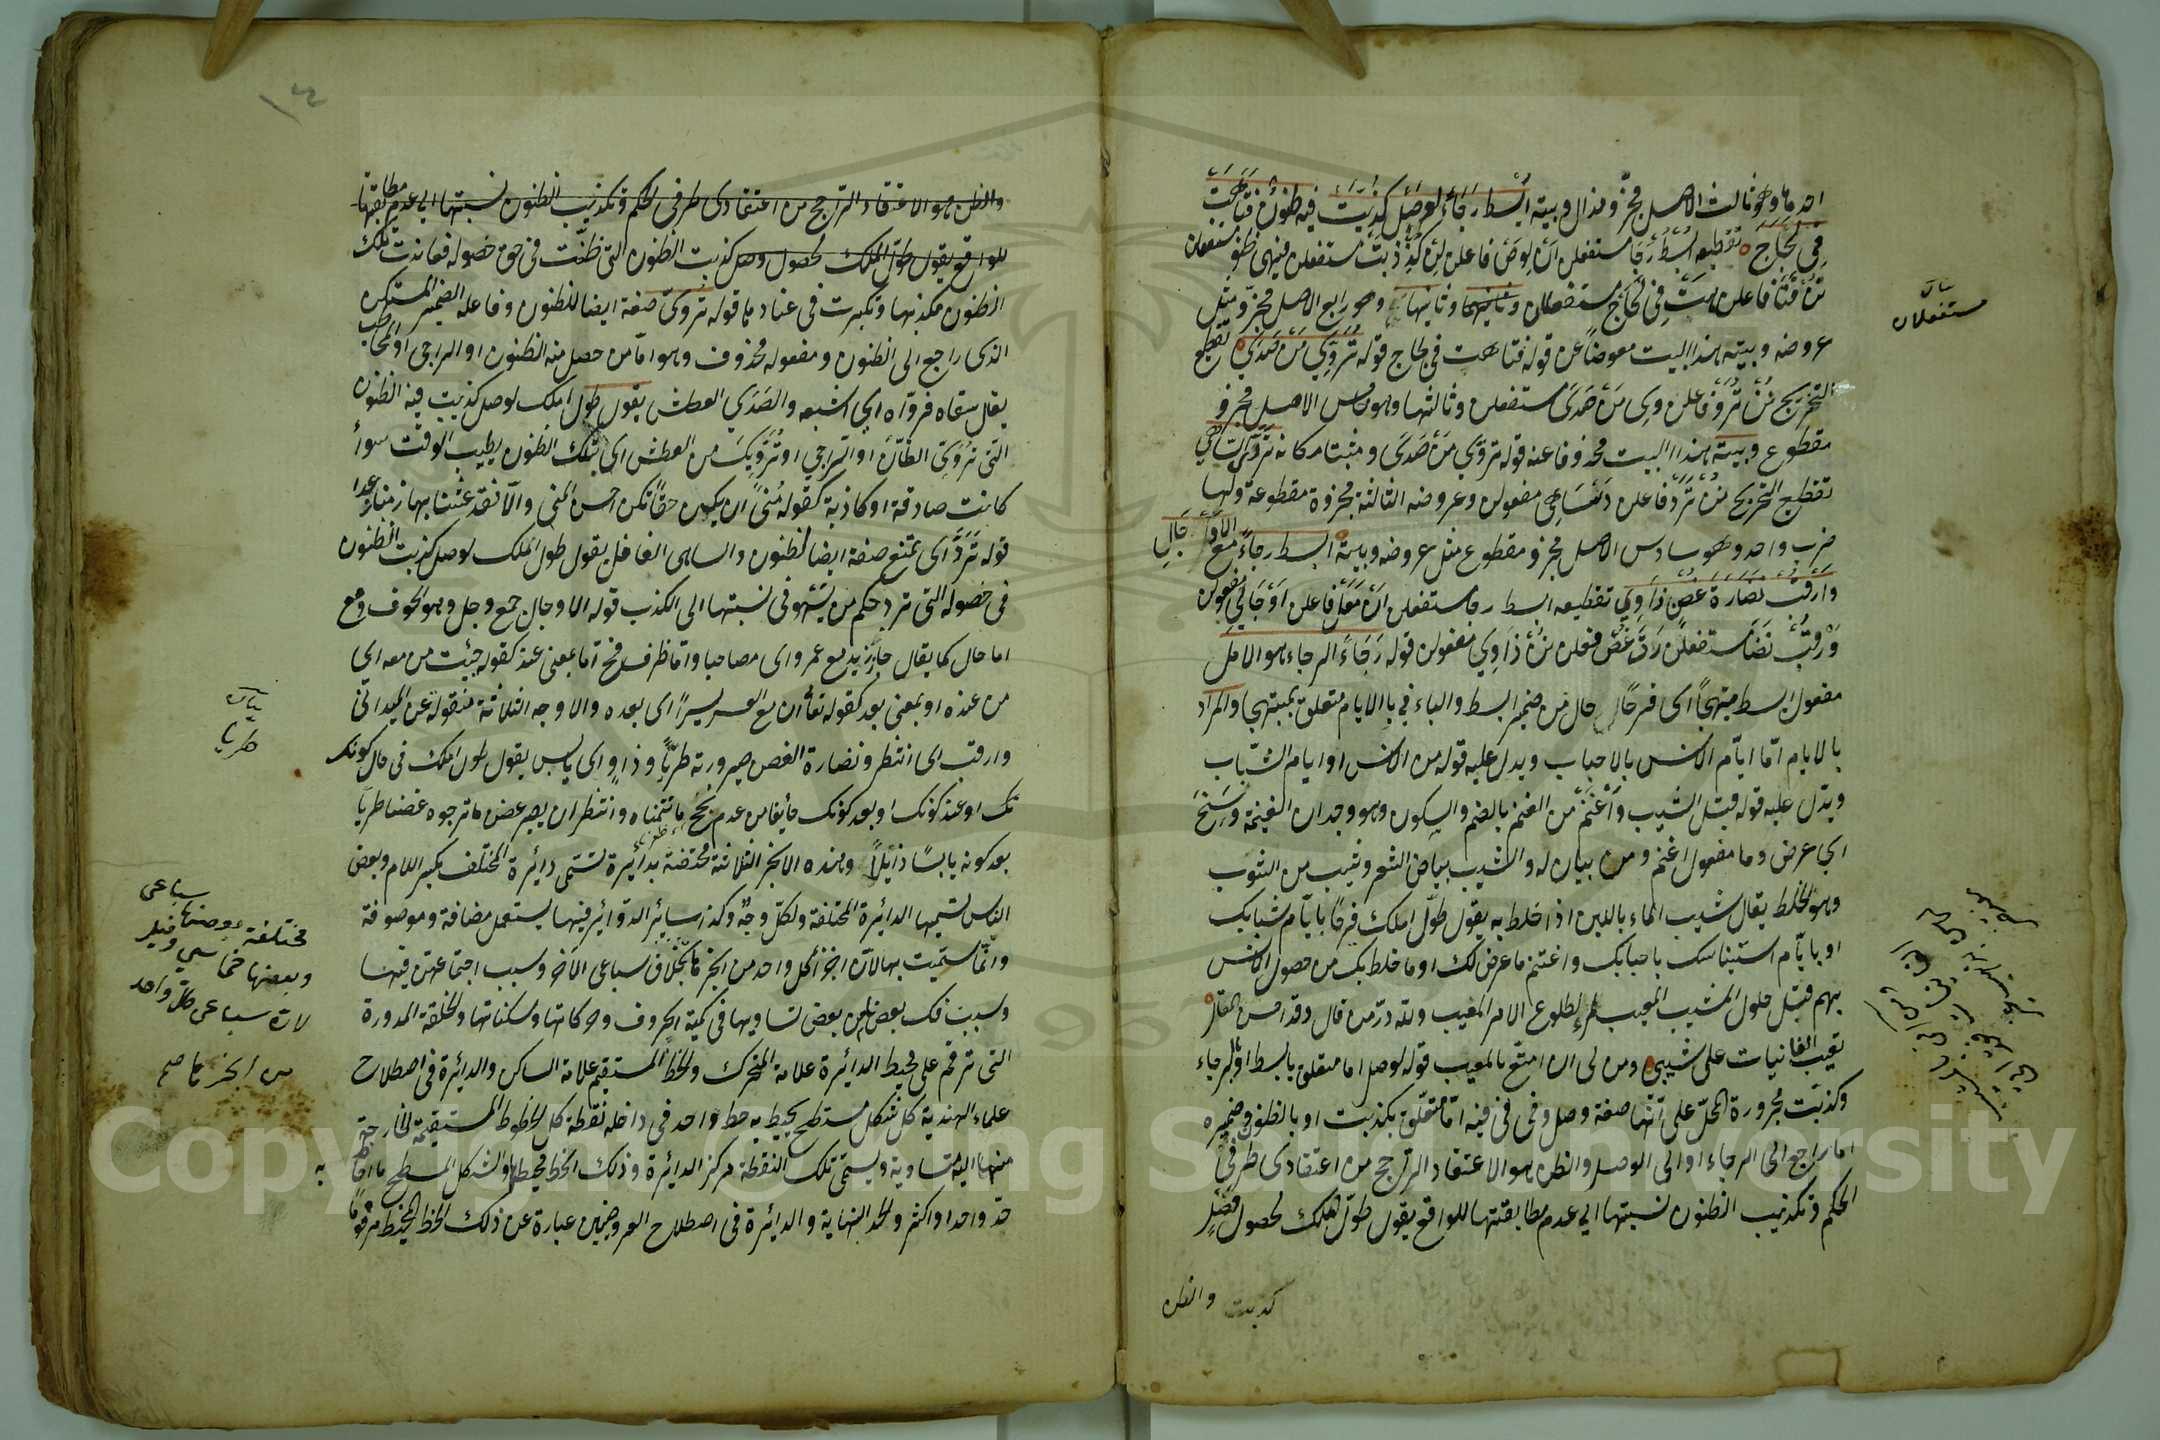 احدها وهو ثالث الاصل مجزو مذال وبيته ابسط رجاء لوصل كذبت فيه ظنون فتاهت
في لجاج تقطيعه ابسط رجا مستفعلن ان لوص فاعلن لن كذذبت مستفعلن فيهي ظنو مستفعلن
نن فتا فاعلن هت في لجاج مستفعلان وثانيها وهو رابع الاصل مجزو مثل
عروضه وبيته هذا البيت معوضا عن قوله فتاهت في لجاج قوله تروي من صدي تقطيع
التخريج نن تروو فاعلن وي من صدي مستفعلن وثالثها وهو خامس الاصل مجزو
مقطوع وبيته هذا البيت محذوفا عنه قوله تروي من صدي ومثبتا مكانه
تقطيع التخريج فاعلن مفعولن وعروضه الثالثة مجزوة مقطوعة ولها
ضرب واحد وهو سادس الاصل مجزو مقطوع مثل عروضه وبيته ابسط رجاء مع الاوجال
وارقب نضارة غصن ذاوي تقطيعه ابسط رجا مستفعلن ان مع فاعلن اوجالي مفعولن
ورقب نضا مستفعلن رة غص فعلن نن ذاوي مفعولن قوله رجاء الرجاء هو الامل
مفعول ابسط مبتهجا اي فرحا حال من ضمير ابسط والباء في بالايام متعلق بمبتهجا والمراد
بالايام اما ايام الانس بالاحباب ويدل عليه قوله من الانس او ايام الشباب
ويدل عليه قوله قبل الشيب واغنم من الغنم بالضم والسكون وهو وجدان الغنيمة وسنح
اي عرض وما مفعول اغنم ومن بيان له والشيب بياض الشعر وشيب من الشوب
وهو الخلط يقال شيب الماء باللبن اذا خلط به يقول طول املك فرحا بايام شبابك
او بايام استيناسك باحبابك واغتنم ما عرض لك او ما خلط بك من حصول الانس
بهم قبل حلول المشيب لطلوع الامر المعيب ولله در من قال وقد احسن المقال
تعيب الغانيات على شيبي ومن لي ان امتع بالمعيب قوله لوصل اما متعلق بابسط او برجاء
وكذبت مجرورة المحل على انها صفة وصل وفي في فيه اما متعلق بكذبت او بالظنون وضميره
اما راجع الى الرجاء او الى الوصل والظن هو الاعتقاد الراجح من اعتقادي طرفي
الحكم وتكذيب الظنون نسبتها الي عدم مطابقتها للواقع يقول طول املك لحصول وصل
كذبت والظن
مستفعلان
والظن هو الاعتقاد الراجح من اعتقادي طرفي الحكم وتكذيب الظنون نسبتها الي عدم مطابقتها
للواقع يقول طول املك لحصول وصل كذبت الظنون التي ظنت في حق حصوله فعاندت تلك
الظنون مكذبها وتكبرت في عنادها قوله تروي صفة ايضا للظنون وفاعله الضمير المستكن
الذي راجع الى الظنون ومفعوله محذوف وهو اما من حصل منه الظنون او الراجي او المخاطب
يقال سقاه فروّاه اي اشبعه والصدي العطش يقول طول املك لوصل كذبت فيه الظنون
التي تروي الظان او الراجي او ترويك من العطش اي بتلك الظنون يطيب الوقت سواء
كانت صادقة او كاذبة كقوله منى ان يكن حقا تكن احسن المنى والا فقد عشنا بها زمنا رغدا
قوله ترد اي تمنع صفة ايضا للظنون والساهي الغافل يقول طول املك لوصل كذبت الظنون
في حصوله التي ترد حكم من يسهو في نسبتها الى الكذب قوله الاوجال جمع وجل وهو الخوف ومع
اما حال كما يقال جاء زيد مع عمرو اي مصاحبا واما ظرف فح اما بمعنى عند كقوله جئت من معه اي
من عنده او بمعنى بعد كقوله تعالى ان مع العسر يسرا اي بعده والاوجه الثلاثة منقولة عن الميداني
وارقب اي انتظر ونضارة الغصن صيرورته طريا وذاو اي يابس يقول طول املك في حال كونك
او عند كونك او بعد كونك خائفا من عدم نجح ما تتمناه وانتظر ان يصير غصن ما ترجوه غصنا طريا
بعد كونه يابسا ذابلا وهذه الابحر الثلاثة مختصة بدائرة تسمى دائرة المختلف بكسر اللام وبعض
الناس يسميها الدائرة المختلفة ولكل وجه وكذا سائر الدوائر فيها يستعمل مضافة وموصوفة
وانما سميت بها لان اجزاء كل واحد من ابحرها بخلاف سباعي الآخر وسبب اجتماعهن فيها
وسبب فك بعضهن من بعض تساويها في كمية الحروف وحركاتها وسكناتها والحلقة المدورة
التي ترقم على محيط الدائرة علامة المتحرك والخط المستقيم علامة الساكن والدائرة في اصطلاح
علماء الهندسة كل شكل مسطح يحيط به خط واحد في داخله نقطة كل الخطوط المستقيمة الخارجة
منها اليه متساوية ويسمى تلك النقطة مركز الدائرة وذلك الخط محيطها والشكل المسطح ما احاط به
حد واحد او اكثر والحد النهاية والدائرة في اصطلاح العروضيين عبارة عن ذلك الخط المحيط مرقوما
بيان
طريا
مختلفة بعضها سباعي
وبعضها خماسي وقيل
لان سباعي كل واحد
من ابحرها صح
Copyright © King Saud University